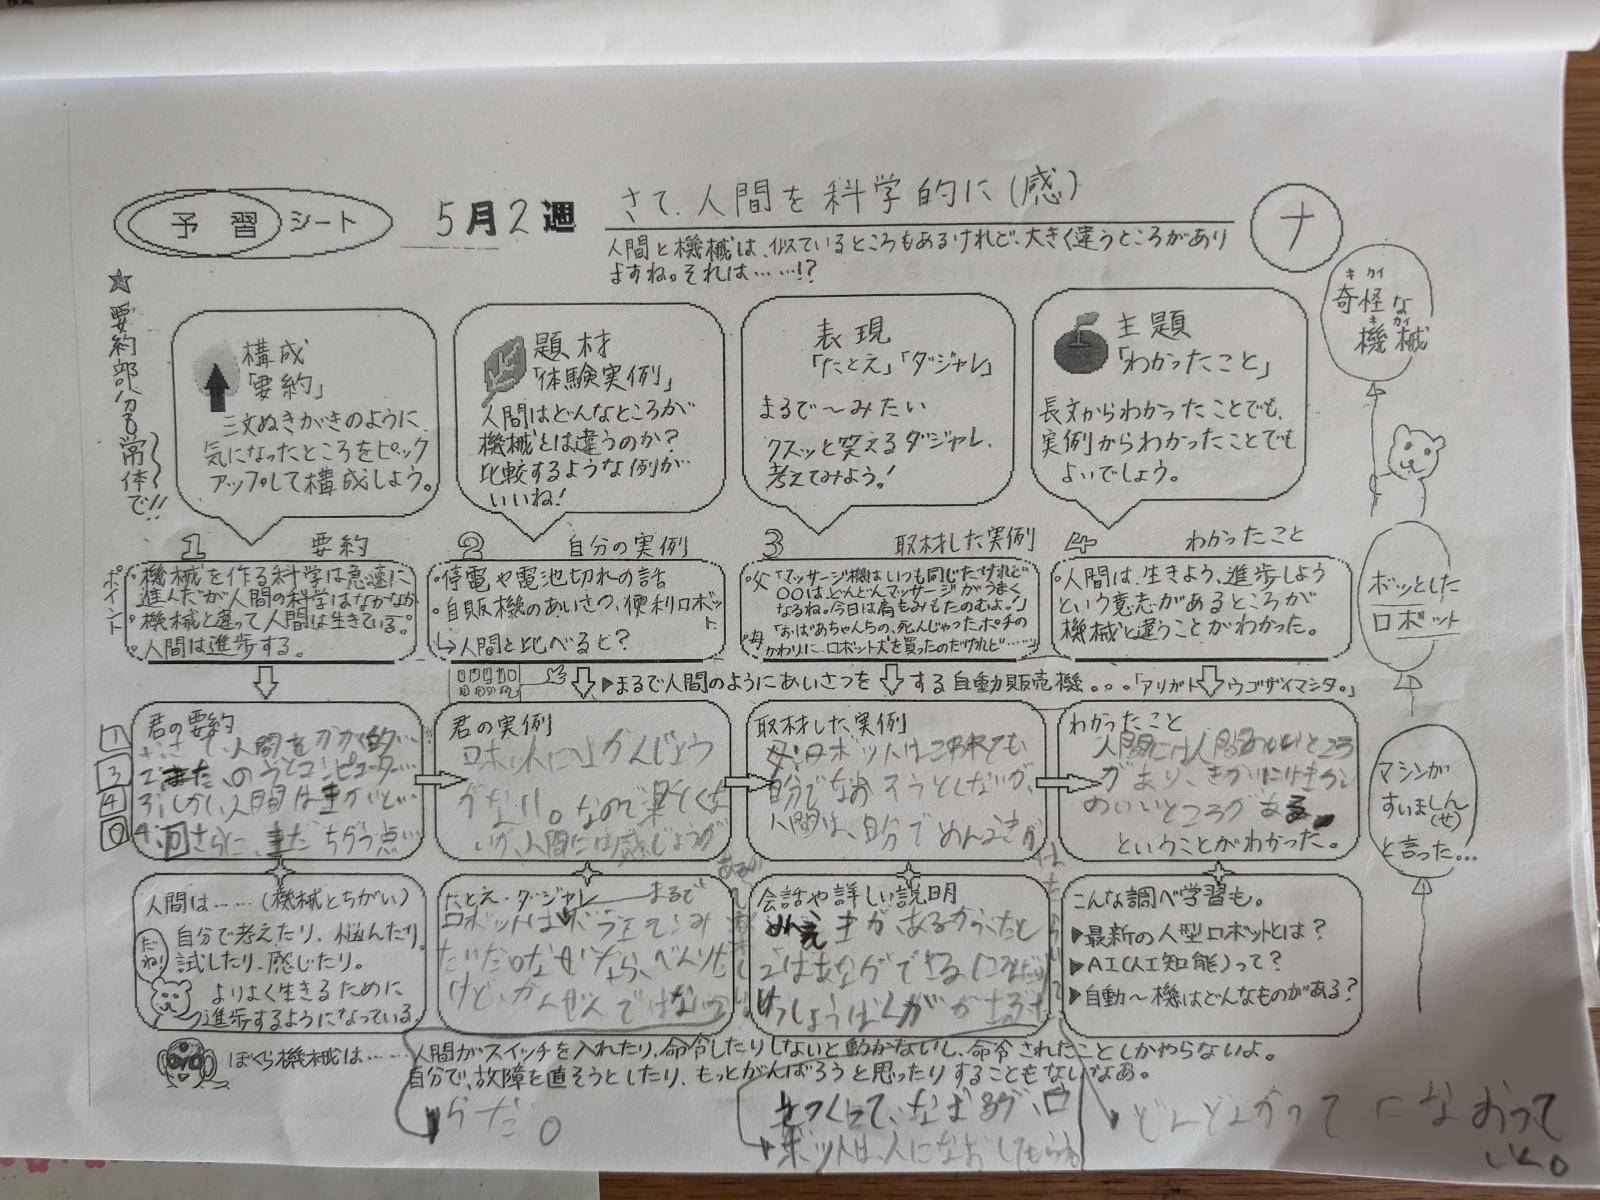 予習シート
5月2週
さて、人間を科学的に(感)
ナ
人間と機械は、似ているところもあるけれど、大きく違うところがあり
ますね。それは……!?
★要約部分も常体で!!
構成
「要約」
三文ぬきがきのように、
気になったところをピック
アップして構成しよう。
題材
「体験実例」
人間はどんなところが
機械とは違うのか?
比較するような例が
いいね!
表現
「たとえ」「ダジャレ」
まるで〜みたい
クスッと笑えるダジャレ、
考えてみよう!
主題
「わかったこと」
長文からわかったことでも、
実例からわかったことでも
よいでしょう。
キカイ
奇怪な
キカイ
機械
ボッとした
ロボット
マシンが
すいましん
(せ)
と言った…
1 要約
ポイント
・機械を作る科学は急速に
進んだが人間の科学はなかなか
・機械と違って人間は生きている。
・人間は進歩する。
2 自分の実例
・停電や電池切れの話
・自販機のあいさつ、便利ロボット
↳人間と比べると?
3 取材した実例
・父「マッサージ機はいつも同じだけれど
〇〇はどんどんマッサージがうまく
なるね。今日は肩もみもたのむよ。」
・母「おばあちゃんちの、死んじゃったポチの
かわりに、ロボット犬を買ったのだけれど……」
4 わかったこと
・人間は、生きよう、進歩しよう
という意志があるところが
機械と違うことがわかった。
▶まるで人間のようにあいさつをする自動販売機。。。「アリガトウゴザイマシタ。」
君の要約
人間を
コンピューター
人間は
ちがう点
君の実例
がない。なので楽しくな
いが、人間には感じょうが
取材した実例
ロボットはこわれても
自分でなおそうとしないが、
人間は、自分でめんえきが
わかったこと
人間には人間のいいところ
があり、きかいにはきかい
のいいところがある。
ということがわかった。
人間は……(機械とちがい)
自分で考えたり、悩んだり、
試したり、感じたり。
よりよく生きるために
進歩するようになっている。
だね!
たとえ・ダジャレ まるで
ロボットは
べんりだ
けど、かんぜんではない
会話や詳しい説明
めんえきがあるから、たと
えば
けっしょうばんが
こんな調べ学習も。
▶最新の人型ロボットとは?
▶AI(人工知能)って?
▶自動〜機はどんなものがある?
ぼくら機械は……人間がスイッチを入れたり、命令したりしないと動かないし、命令されたことしかやらないよ。
自分で、故障を直そうとしたり、もっとがんばろうと思ったりすることもないなあ。
らだ。
なおるが、ロ
ボットは、人になおしてもらう